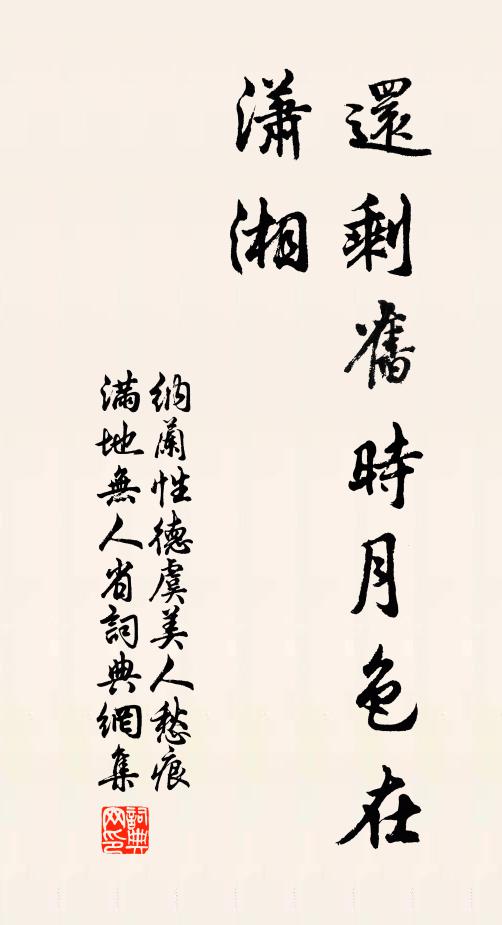 還剩舊時月色在
瀟湘
納蘭性德虞美人愁痕
滿地無人省詞典網集
詞典
网印